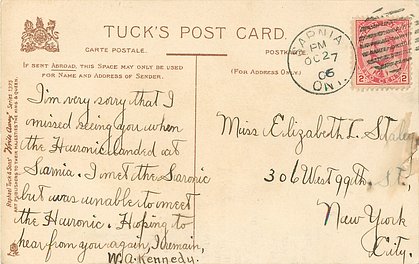 TUCK'S POST CARD.
CARTE POSTALE.
POSTKARTE.
IF SENT ABROAD, THIS SPACE MAY ONLY BE USED
FOR NAME AND ADDRESS OF SENDER.
(FOR ADDRESS ONLY.)
SARNIA
PM
OC 27
06
ONT.
2 2
I'm very sorry that I
missed seeing you when
the Huronic landed at
Sarnia. I met the Saronic
but was unable to meet
the Huronic. Hoping to
hear from you again, I remain,
W.A. Kennedy.
Miss Elizabeth L.
306 West 99th. St.,
New York
City.
Raphael Tuck & Sons' Series 1325
ART PUBLISHERS TO THEIR MAJESTIES THE KING & QUEEN.